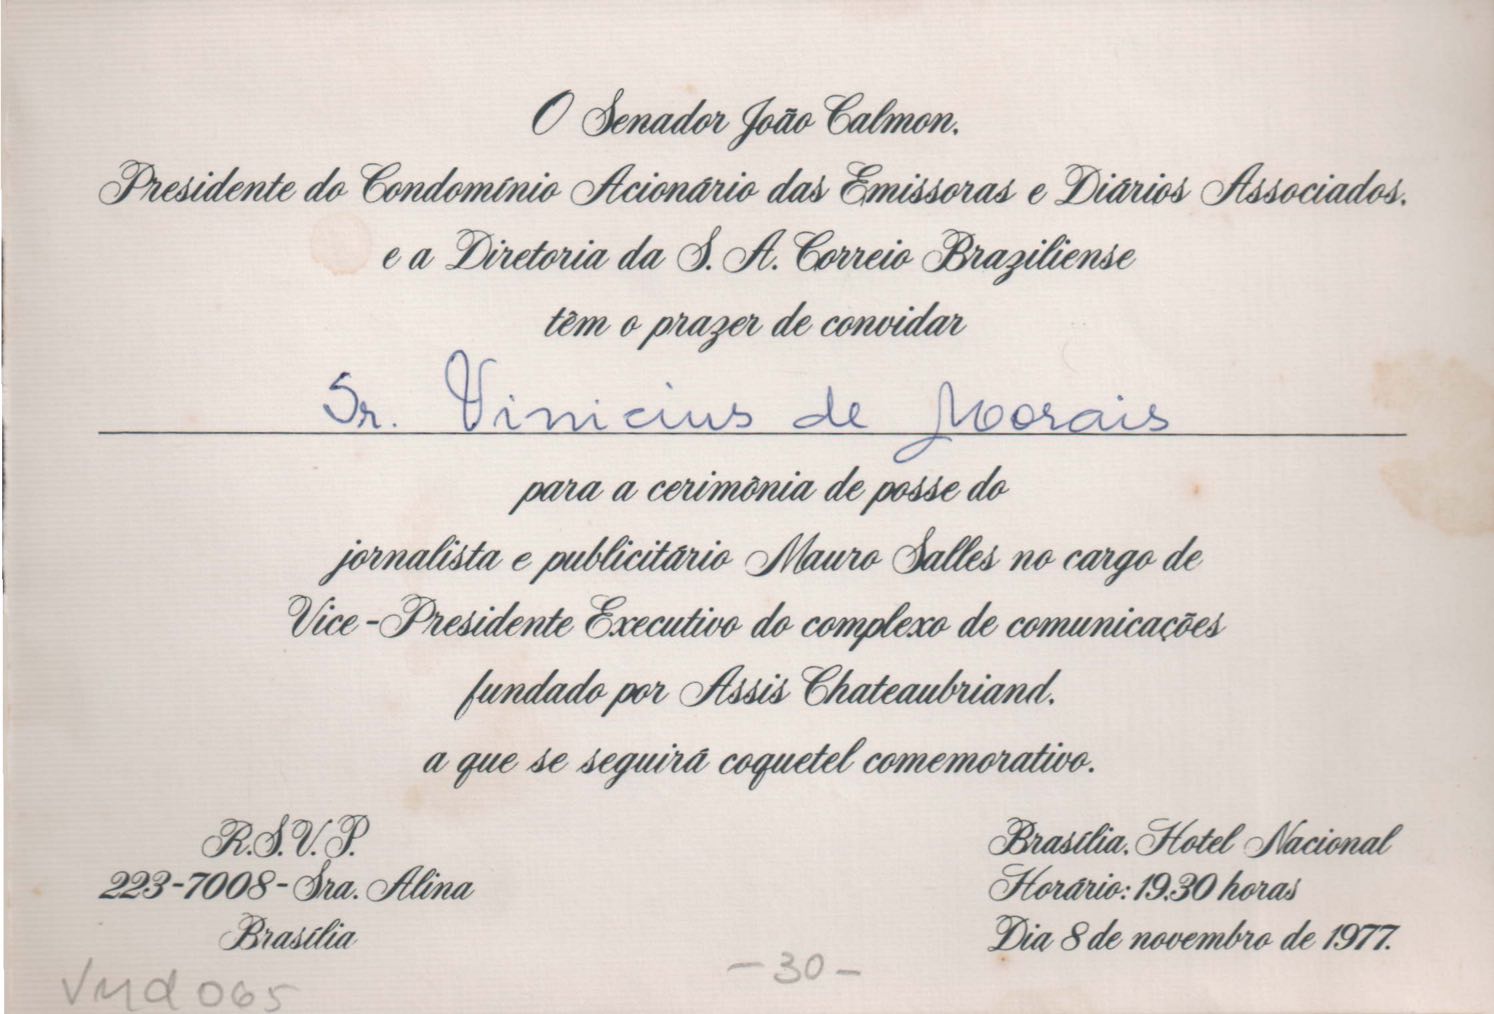 O Senador João Calmon,
Presidente do Condomínio Acionário das Emissoras e Diários Associados,
e a Diretoria da S. A. Correio Braziliense
têm o prazer de convidar
Sr. Vinicius de Morais
para a cerimônia de posse do
jornalista e publicitário Mauro Salles no cargo de
Vice-Presidente Executivo do complexo de comunicações
fundado por Assis Chateaubriand,
a que se seguirá coquetel comemorativo.
R.S.V.P.
223-7008-Sra. Alina
Brasília
Brasília, Hotel Nacional
Horário: 19,30 horas
Dia 8 de novembro de 1977.
- 30 -
Vmd 065